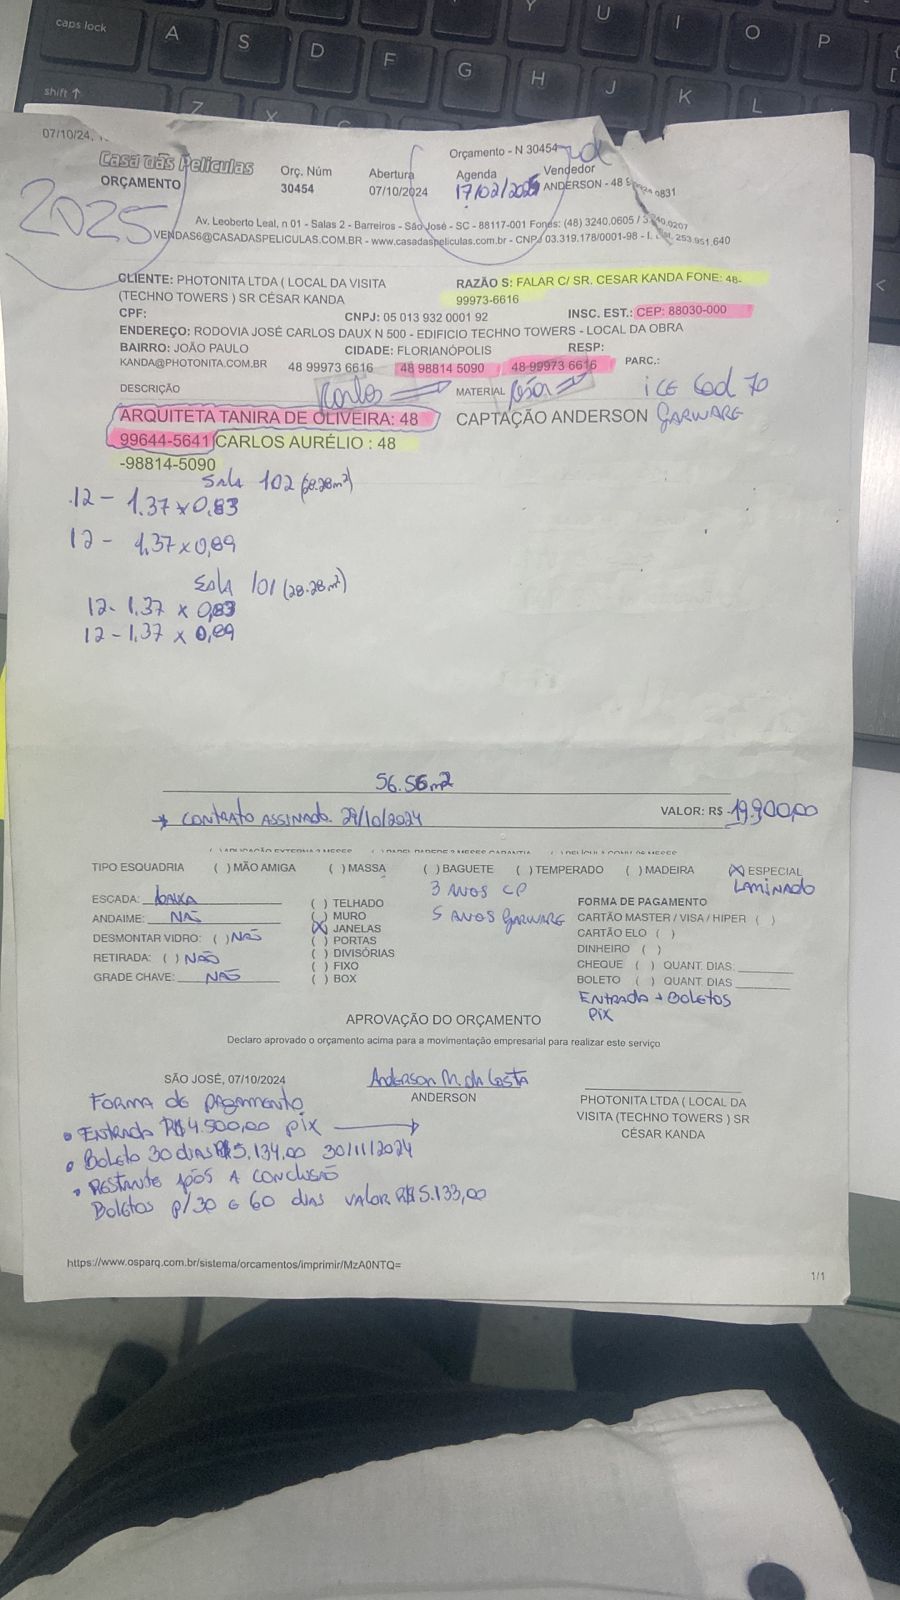 07/10/24,
Orçamento - N 30454
Casa das Películas
ORÇAMENTO
Orç. Núm
30454
Abertura
07/10/2024
Agenda
17/02/2025
Vendedor
ANDERSON - 48 9 0831
2025
Av. Leoberto Leal, n 01 - Salas 2 - Barreiros - São José - SC - 88117-001 Fones: (48) 3240.0605 / 3240.0207
VENDAS6@CASADASPELICULAS.COM.BR - www.casadaspeliculas.com.br - CNPJ 03.319.178/0001-98 - I. Est. 253.951.640
CLIENTE: PHOTONITA LTDA ( LOCAL DA VISITA
(TECHNO TOWERS ) SR CÉSAR KANDA
RAZÃO S: FALAR C/ SR. CESAR KANDA FONE: 48-
99973-6616
CPF:
CNPJ: 05 013 932 0001 92
INSC. EST.: CEP: 88030-000
ENDEREÇO: RODOVIA JOSÉ CARLOS DAUX N 500 - EDIFICIO TECHNO TOWERS - LOCAL DA OBRA
BAIRRO: JOÃO PAULO
CIDADE: FLORIANÓPOLIS
RESP:
KANDA@PHOTONITA.COM.BR
48 99973 6616
48 98814 5090
48-99973 6616
PARC.:
DESCRIÇÃO
Carlos
MATERIAL
César
ICE Cod 70
ARQUITETA TANIRA DE OLIVEIRA: 48
99644-5641 CARLOS AURÉLIO : 48
-98814-5090
CAPTAÇÃO ANDERSON GARWARE
SALA 102 (28.28m²)
12 - 1.37 x 0,83
12 - 1.37 x 0,89
SALA 101 (28.28m²)
12- 1.37 x 0,83
12 - 1.37 x 0,89
56.56m²
→ CONTRATO ASSINADO 29/10/2024
VALOR: R$ 19.900,00
TIPO ESQUADRIA ( ) MÃO AMIGA ( ) MASSA ( ) BAGUETE ( ) TEMPERADO ( ) MADEIRA (X) ESPECIAL
LAMINADO
ESCADA: BAIXA
ANDAIME: NÃO
DESMONTAR VIDRO: ( ) NÃO
RETIRADA: ( ) NÃO
GRADE CHAVE: NÃO
( ) TELHADO
( ) MURO
(X) JANELAS
( ) PORTAS
( ) DIVISÓRIAS
( ) FIXO
( ) BOX
3 ANOS CP
5 ANOS GARWARE
FORMA DE PAGAMENTO
CARTÃO MASTER / VISA / HIPER ( )
CARTÃO ELO ( )
DINHEIRO ( )
CHEQUE ( ) QUANT. DIAS:
BOLETO ( ) QUANT. DIAS
ENTRADA + BOLETOS
PIX
APROVAÇÃO DO ORÇAMENTO
Declaro aprovado o orçamento acima para a movimentação empresarial para realizar este serviço
SÃO JOSÉ, 07/10/2024
Anderson M. da Costa
ANDERSON
PHOTONITA LTDA ( LOCAL DA
VISITA (TECHNO TOWERS ) SR
CÉSAR KANDA
FORMA DE PAGAMENTO
• ENTRADA R$4.500,00 PIX →
• Boleto 30 dias R$5.134,00 30/11/2024
• RESTANTE APÓS A CONCLUSÃO
Boletos p/30 e 60 dias VALOR R$5.133,00
https://www.osparq.com.br/sistema/orcamentos/imprimir/MzA0NTQ=
1/1
caps lock
A
S
D
F
G
H
J
K
L
Y
U
I
O
P
shift ↑
Z
X